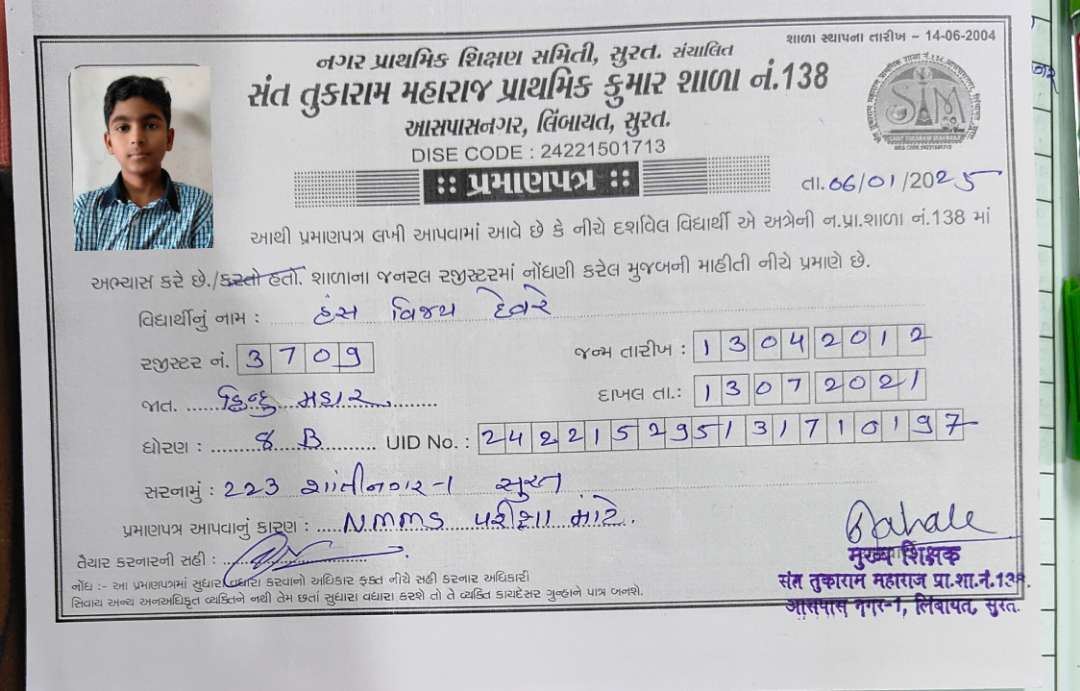 શાળા સ્થાપના તારીખ – 14-06-2004
નગર પ્રાથમિક શિક્ષણ સમિતી, સુરત. સંચાલિત
સંત તુકારામ મહારાજ પ્રાથમિક કુમાર શાળા નં.138
આસપાસનગર, લિંબાયત, સુરત.
DISE CODE : 24221501713
SIM
:: પ્રમાણપત્ર ::
તા. 06/01/2025
આથી પ્રમાણપત્ર લખી આપવામાં આવે છે કે નીચે દર્શાવેલ વિદ્યાર્થી એ અત્રેની ન.પ્રા.શાળા નં.138 માં
અભ્યાસ કરે છે./કરતો હતો. શાળાના જનરલ રજીસ્ટરમાં નોંધણી કરેલ મુજબની માહીતી નીચે પ્રમાણે છે.
વિદ્યાર્થીનું નામ : હંસ વિજય દેવરે
રજીસ્ટર નં. 3709 જન્મ તારીખ : 13042012
જાત. હિન્દુ મહાર દાખલ તા.: 13072021
ધોરણ : ૪ B UID No. : 242215295131710197
સરનામું : 223 શાંતીનગર-1 સુરત
પ્રમાણપત્ર આપવાનું કારણ : NMMS પરીક્ષા માટે.
તૈયાર કરનારની સહી :
નોંધ :- આ પ્રમાણપત્રમાં સુધારા વધારા કરવાનો અધિકાર ફક્ત નીચે સહી કરનાર અધિકારી
સિવાય અન્ય અનઅધિકૃત વ્યક્તિને નથી તેમ છતાં સુધારા વધારા કરશે તો તે વ્યક્તિ કાયદેસર ગુન્હાને પાત્ર બનશે.
મુખ્ય શિક્ષક
સંત તુકારામ મહારાજ પ્રા.શા.નં.138
આસપાસ નગર-1, લિંબાયત, સુરત.